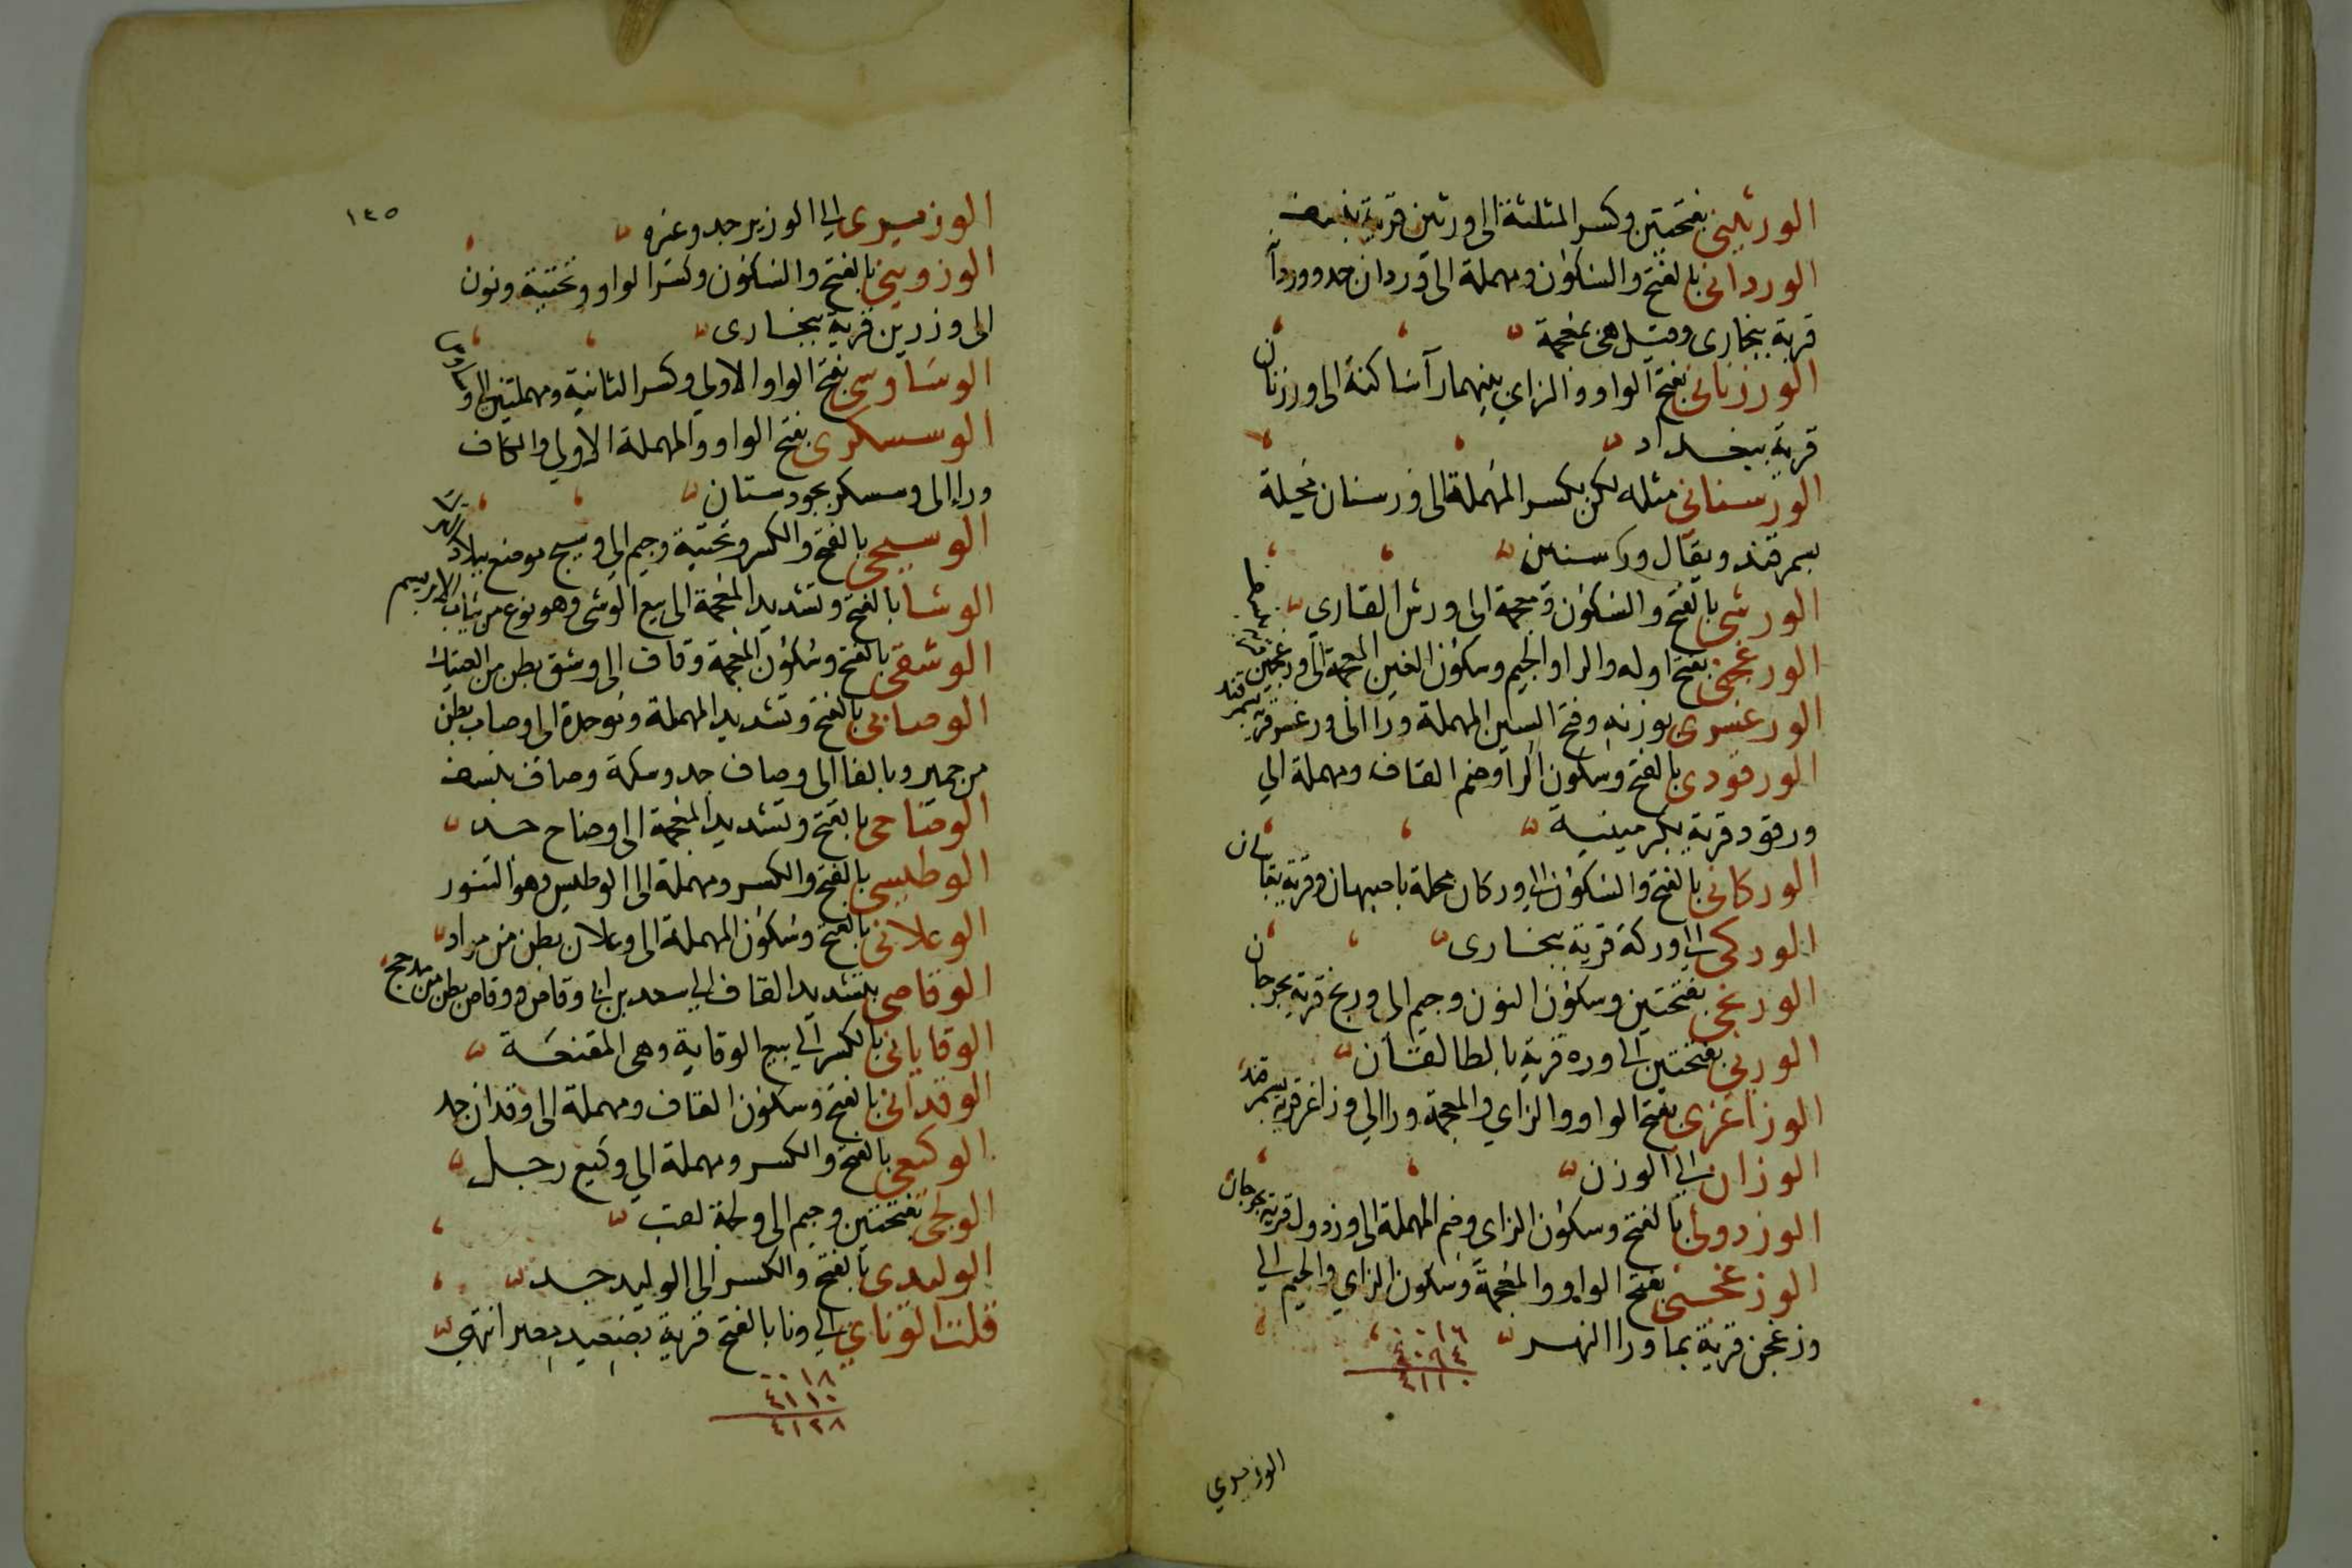 الورثيني بفتحتين وكسر المثلثة الى ورثين قرية بنسف
الورداني بالفتح والسكون ومهملة الى وردان جد ووردآ
قرية ببخارى وقيل هي بمعجمة
الورزناني بفتح الواو والزاي بينهما رآ ساكنة الى ورزنان
قرية ببغداد
الورسناني مثله لكن بكسر المهملة الى ورسنان محلة
بسمرقند ويقال ورسنين
الورشي بالفتح والسكون ومعجمة الى ورش القاري
الورغجني بفتح اوله والرا والجيم وسكون الغين المعجمة الى ورغجن
الورغسري بوزنه وفتح السين المهملة ورا الى ورغسر قرية بسمرقند
الورقودي بالفتح وسكون الرا وضم القاف ومهملة الي
ورقود قرية بكرمينية
الوركاني بالفتح والسكون الى وركان محلة باصبهان وقرية بقاسان
الوركي الى وركة قرية ببخارى
الورنجي بفتحتين وسكون النون وجيم الى ورنج قرية بجرجان
الورني بفتحتين الى وره قرية بالطالقان
الوزاغري بفتح الواو والزاي والمعجمة ورا الي وزاغر قرية بسمرقند
الوزان الى الوزن
الوزدولي بالفتح وسكون الزاى وضم المهملة الى وزدول قرية بجرجان
الوزغجني بفتح الواو والمعجمة وسكون الزاي والجيم الى
وزغجن قرية بما ورا النهر
٠٠١٦
٤٠٩٤
٤١١٠
الوزيري
١٤٥
الوزيرى الى الوزير جد وغيره
الوزويني بالفتح والسكون وكسر الواو وتحتية ونون
الى وزوين قرية ببخارى
الوساوسي بفتح الواو الاولي وكسر الثانية ومهملتين الى وساوس
الوسسكرى بفتح الواو والمهملة الاولي والكاف
ورا الى وسسكر بجودستان
الوسيجي بالفتح والكسر وتحتية وجيم الى وسيج موضع ببلاد
الوشا بالفتح وتشديد المعجمة الى بيع الوشى وهو نوع من ثياب الابريسم
الوشقي بالفتح وسكون المعجمة وقاف الى وشق بطن من العتيك
الوصابي بالفتح وتشديد المهملة وموحدة الى وصاب بطن
من حمير وبالفا الى وصاف جد وسكة وصاف بنسف
الوضاحي بالفتح وتشديد المعجمة الى وضاح جد
الوطيسي بالفتح والكسر ومهملة الى الوطيس وهو التنور
الوعلاني بالفتح وسكون المهملة الى وعلان بطن من مراد
الوقاصي بتشديد القاف الى سعد بن ابي وقاص ووقاص بطن من مذحج
الوقاياتي بالكسر الى بيع الوقاية وهى المقنعة
الوقداني بالفتح وسكون القاف ومهملة الى وقدان جد
الوكيعي بالفتح والكسر ومهملة الي وكيع رجل
الولجي بفتحتين وجيم الى ولجة لقب
الوليدى بالفتح والكسر الى الوليد جد
قلت الوناي الى ونا بالفتح قرية بصعيد مصر انتهى
٠٠١٨
٤١١٠
٤١٢٨